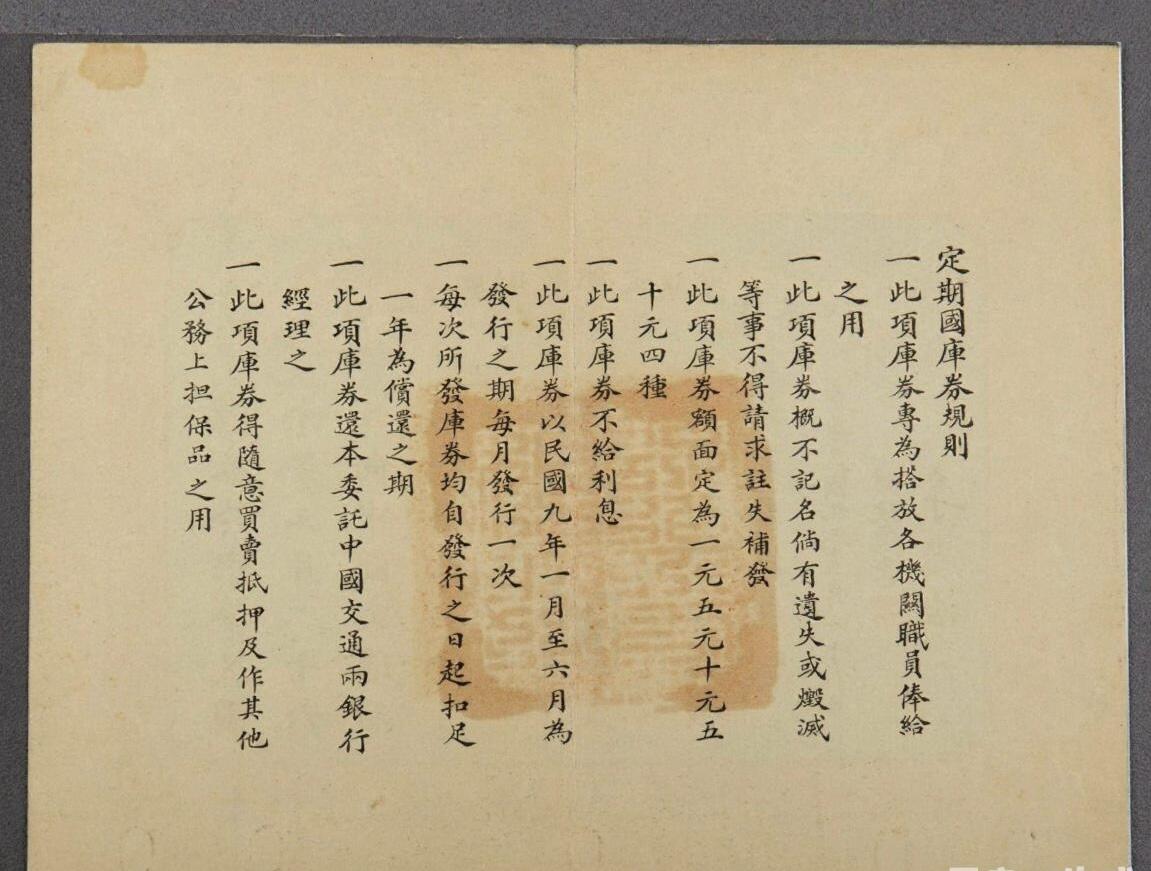 定期國庫券規則
一此項庫券專為搭放各機關職員俸給
之用
一此項庫券概不記名倘有遺失或燬滅
等事不得請求註失補發
一此項庫券額面定為一元五元十元五
十元四種
一此項庫券不給利息
一此項庫券以民國九年一月至六月為
發行之期每月發行一次
一每次所發庫券均自發行之日起扣足
一年為償還之期
一此項庫券還本委託中國交通兩銀行
經理之
一此項庫券得隨意買賣抵押及作其他
公務上担保品之用